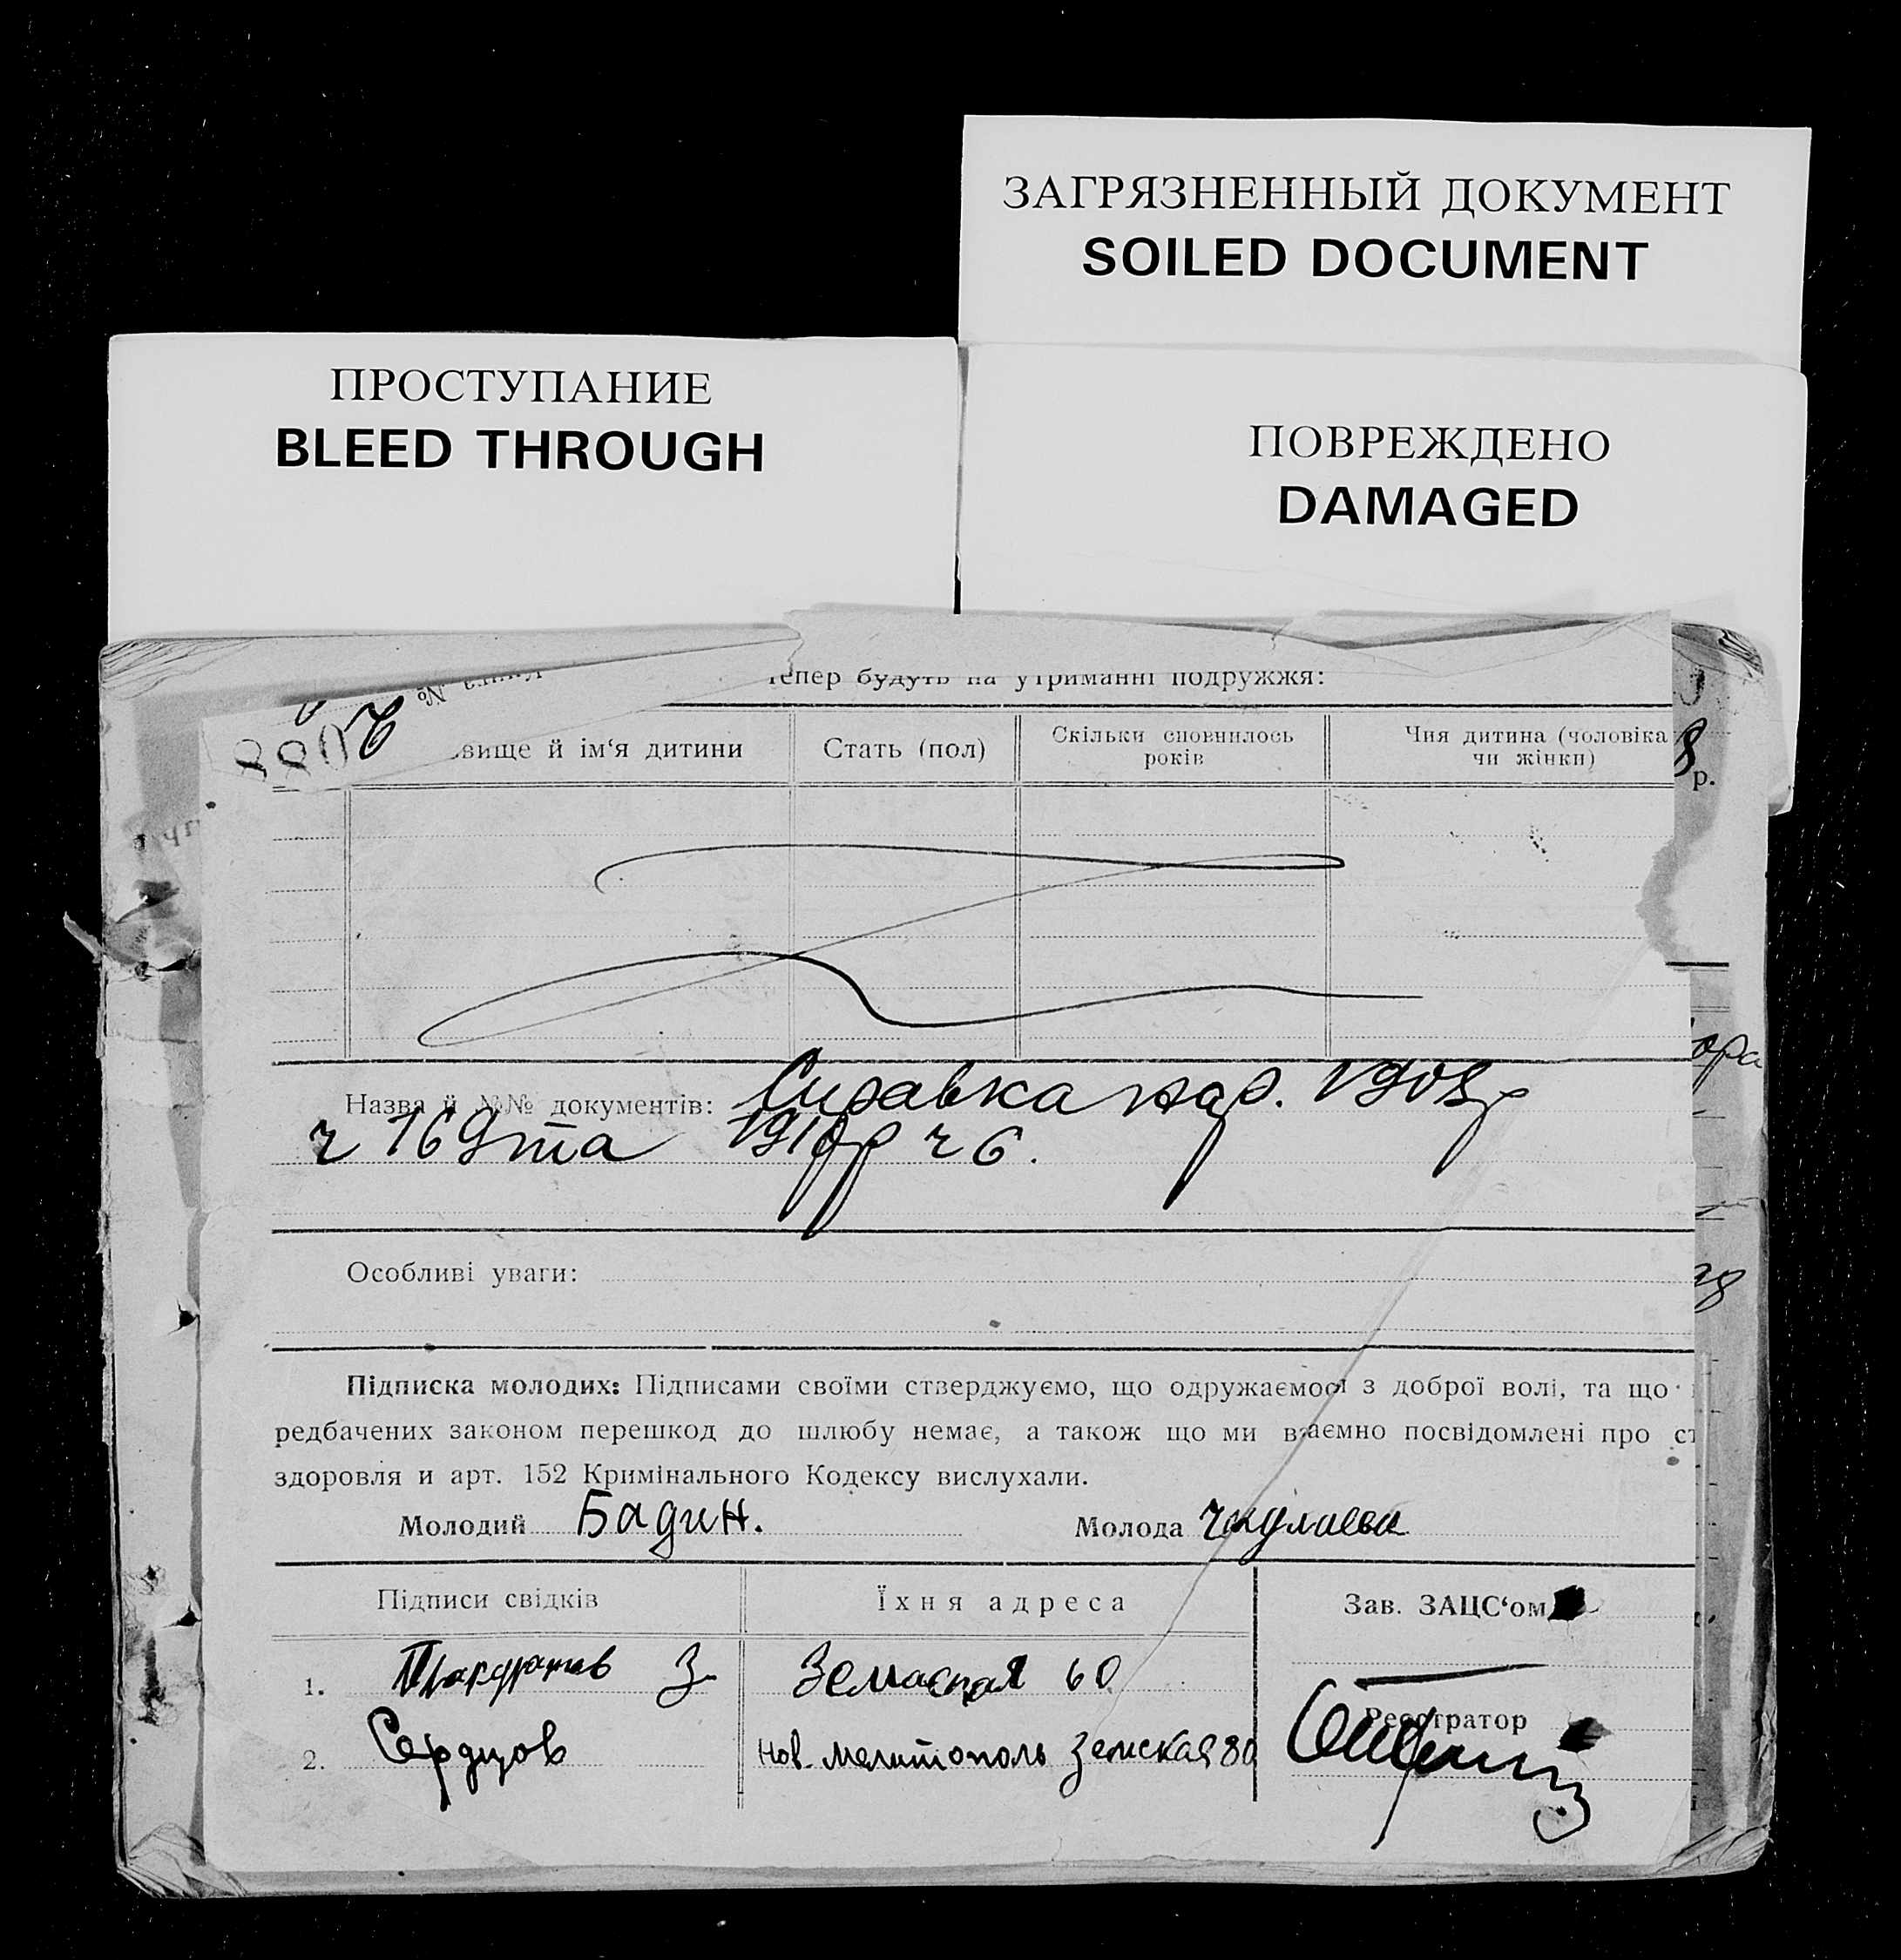 ЗАГРЯЗНЕННЫЙ ДОКУМЕНТ
SOILED DOCUMENT
ПРОСТУПАНИЕ
BLEED THROUGH
ПОВРЕЖДЕНО
DAMAGED
тепер будуть на утриманні подружжя:
вище й ім‘я дитини
Стать (пол)
Скільки сповнилось
років
Чия дитина (чоловіка
чи жінки)
8 р.
Назва й №№ документів: Справка 1903р
ч 169 та 1910р ч 6.
Особливі уваги:
Підписка молодих: Підписами своїми стверджуємо, що одружаємося з доброї волі, та що
редбачених законом перешкод до шлюбу немає, а також що ми взаємно посвідомлені про ст
здоровля и арт. 152 Кримінального Кодексу вислухали.
Молодий Бадин. Молода
Підписи свідків
Їхня адреса
Зав. ЗАЦС‘ом
1. З. Земская 60
Реєстратор
2. Сердцов Нов. Мелитополь Земская 80